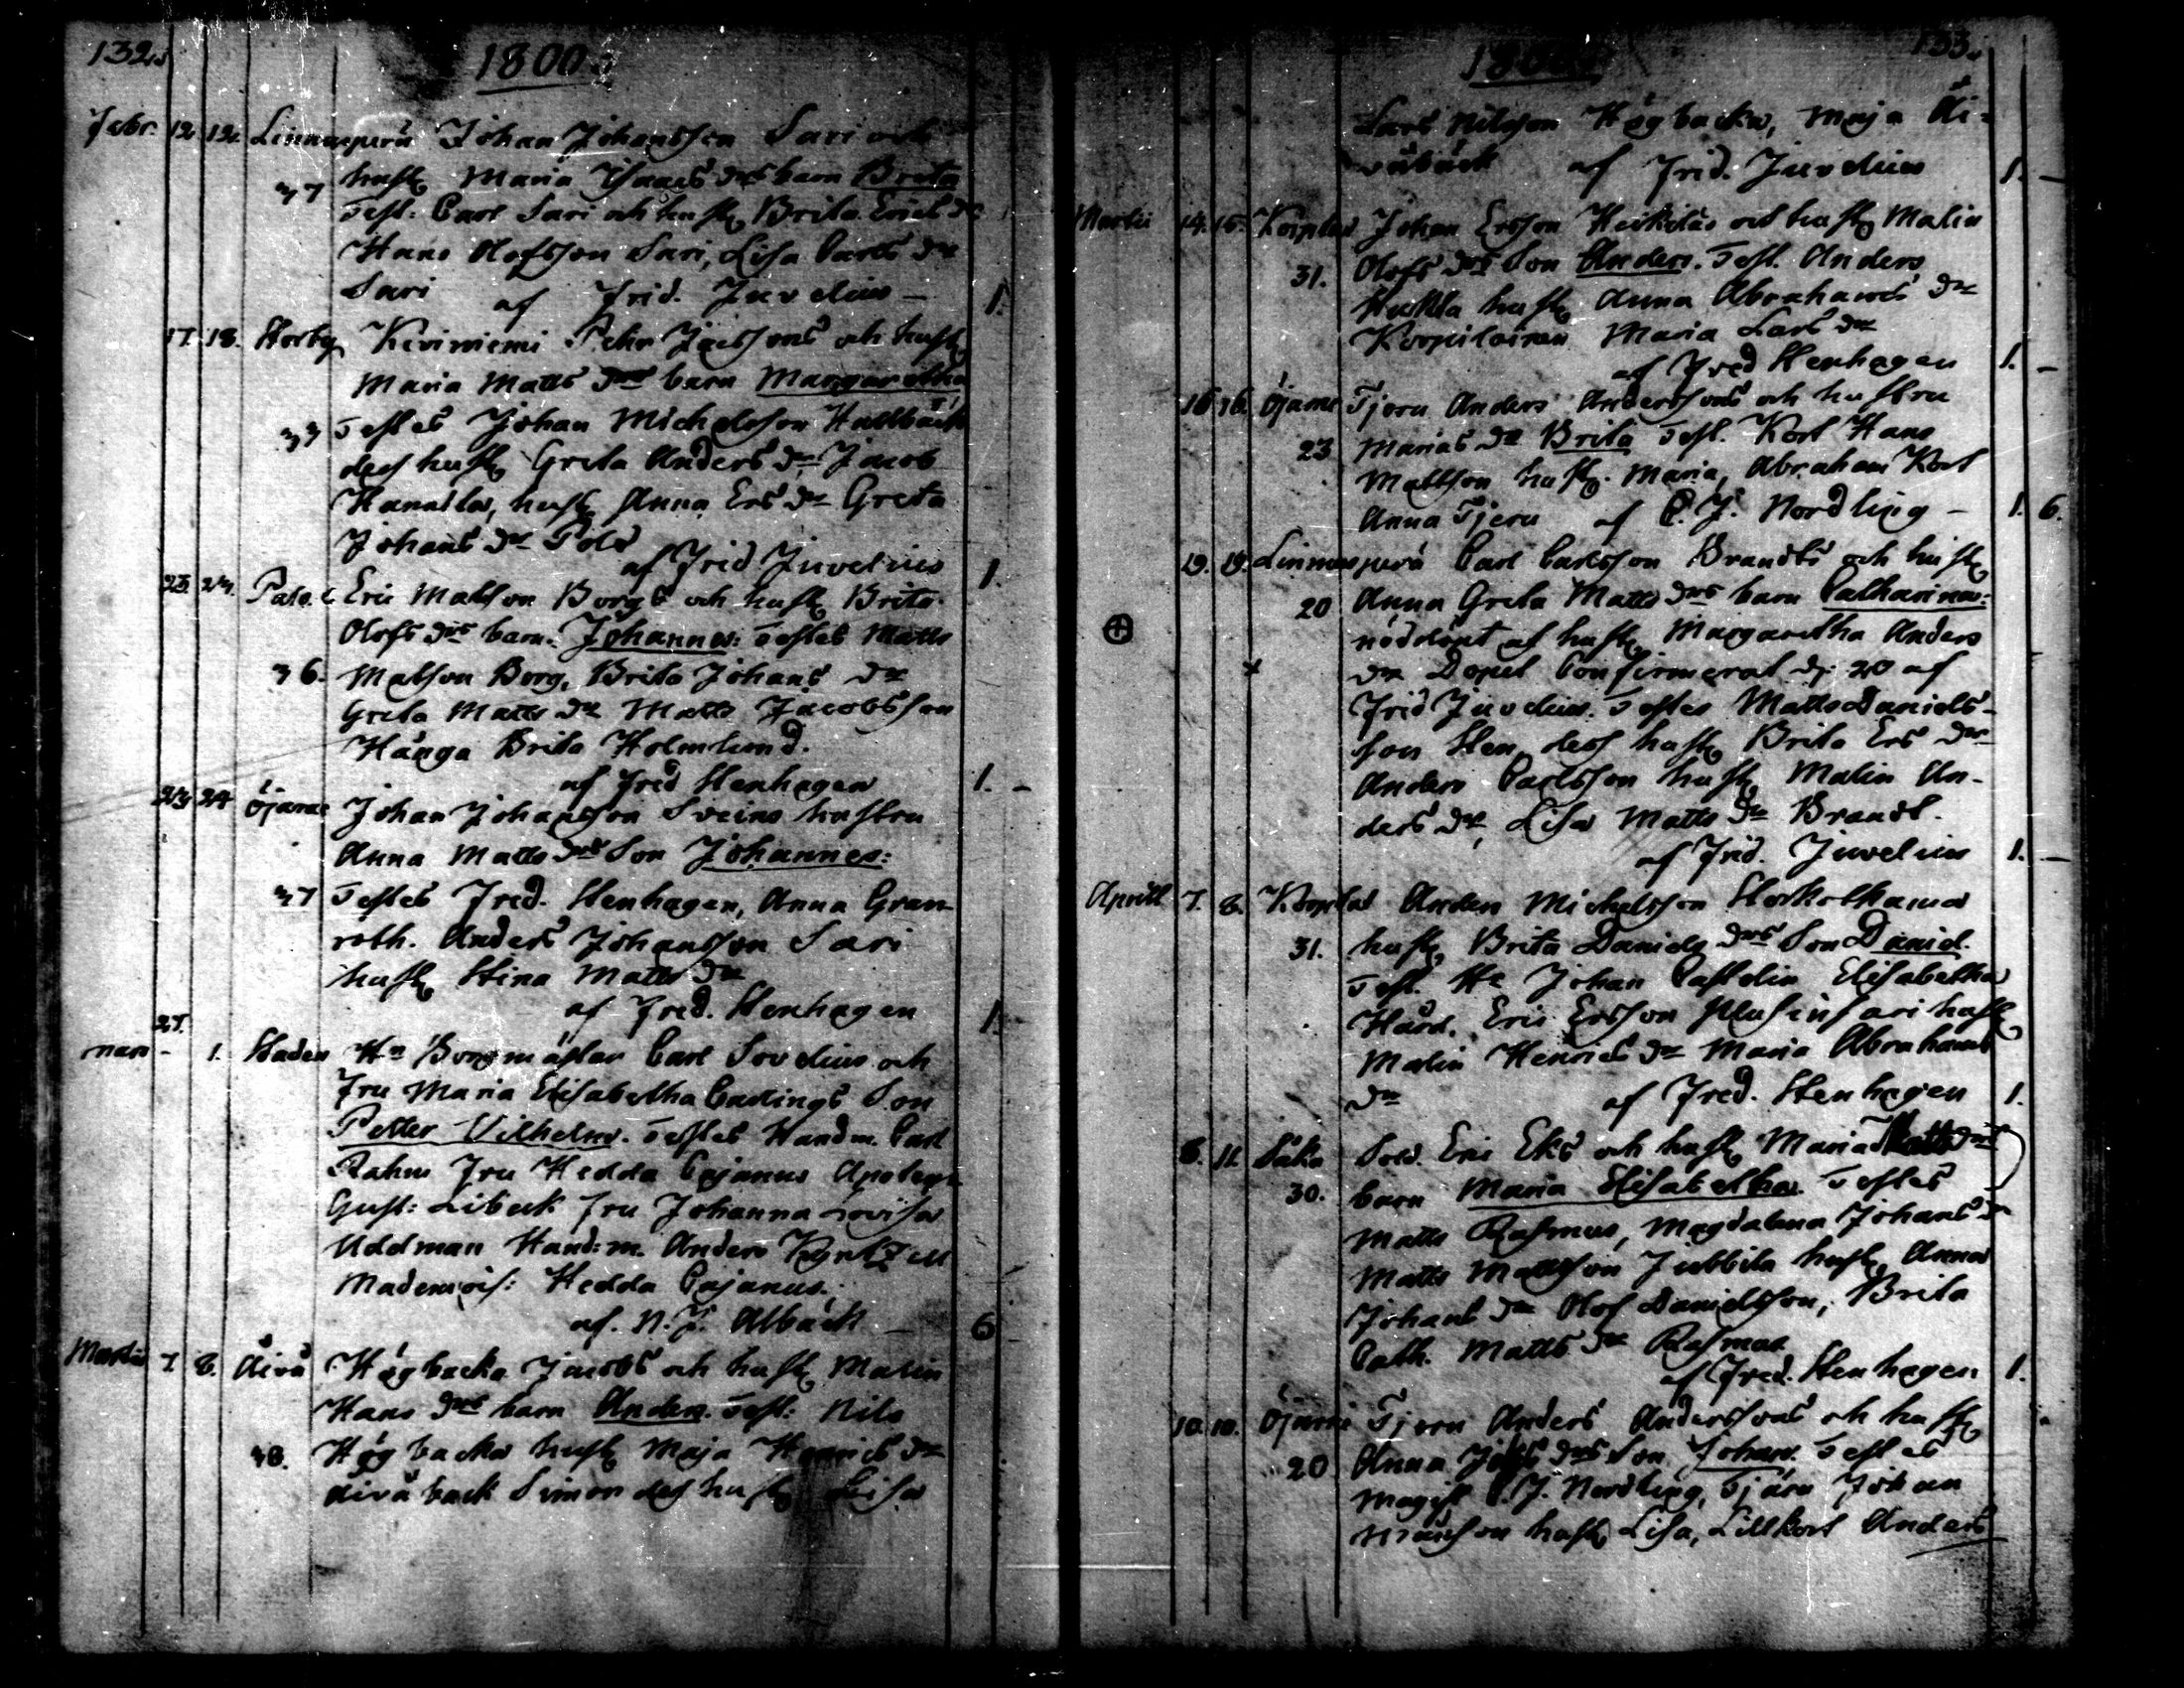 132.
1800.
Febr. 12 12. Linnusperä Johan Johansson Sari och
hust Maria Isaacs drs barn Brita
37
Test: Carl Sari och hust Brita Erics dr
Hans Olofsson Sari, Lisa Carls dr
Sari af Frid. Juvelius — 1.
17. 18. Storby Keriniemi Petter Jacssons och hust
Maria Matts drs barn Margaretha
33 Testes Johan Michelsson Hallbäck
dess hust Greta Anders dr Jacob
Hanilla, hust Anna Ers dr Greta
Johans dr Pold
af Frid Juvelius 1.
23. 24. Palo. Eric Matsson Borgs och hust Brita
Olofs drs barn. Johannes: Testes Matts
36. Matson Borg, Brita Johans dr
Greta Matts dr Matts Jacobsson
Hänga Brita Holmlund.
af Fred Stenhagen 1. –
23 24 Öjarne Johan Johansson Sveins hustru
Anna Matts drs Son Johannes:
37 Testes Fred. Stenhagen, Anna Gran-
roth. Anders Johansson Sari
hust Stina Matts dr
af Fred. Stenhagen 1. –
27.
mars – 1. Staden Hr Borgmästar Carl Sovelius och
Fru Maria Elisabetha Carlings Son
Petter Vilhelm. Testes Handm. Carl
Rahm Fru Hedda Cajanus Apoteq
Gust: Libeck Fru Johanna Lovisa
Uddman Hand:m. Anders Kyntzell
Mademois: Hedda Cajanus.
af. N. J. Albäck — 6
Martii 7. 8. Åivå Högbacka Jacobs och hust Malin
Hans drs barn Anders. Test: Nils
38. Högbacka hust Maja Henrics dr
Åivåback Simon des hust Lisa
133.
1800.
Lars Nilsson Högbacka, Maja Åi-
våbäck af Frid. Juvelius 1. —
Martii 14. 15. Korplax Johan Ersson Heikilas och hust Malin
31. Olofs drs Son Anders. Test. Anders
hust Anna Abrahams dr
Korpilainen Maria Lars dr
af Fred Stenhagen 1. –
15 16. Öjarne Tjeru Anders Anderssons och hustru
23 Marias dr Brita Test. Kort Hans
Mattson hust. Maria, Abraham Kort
Anna Tjeru af C. J. Nordling – 1. 6.
19. 19. Linnusperä Carl Carlsson Brandts och hust
20 Anna Greta Matts drs barn Catharina:
nöddöpt af hust Margaretha Anders
dr Dopet Confirmerat d. 20 af
Frid Juvelius. Testes Matts Daniels-
son Sten dess hust Brita Ers dr
Anders Carlsson hust Malin An-
ders dr, Lisa Matts dr Brandt.
af Frid. Juvelius 1. —
Aprill 7. 8. Korplax Anders Michelsson Storkolkama
31. hust Brita Daniels drs Son Daniel.
Test. Hr Johan Castelin Elisabetha
Hård. Eric Ersson hust
Malin Henrics dr Maria Abrahams
dr af Fred. Stenhagen 1.
8. 11 Såka Sold. Eric Eks och hust Maria Matts drs
30. barn Maria Elisabetha. Testes
Matts Rasmus, Magdalena Johans dr
Matts Mattsson Jubbila hust Anna
Johans dr Olof Danielsson, Brita
Cath. Matts dr Rasmas
af Fred. Stenhagen 1.
10. 10. Öjarne Tjeru Anders Anderssons och hust
20 Anna drs Son Johan. Testes
Magist C. J. Nordling, Tjäru Johan
hust Lisa, Lillkort Anders